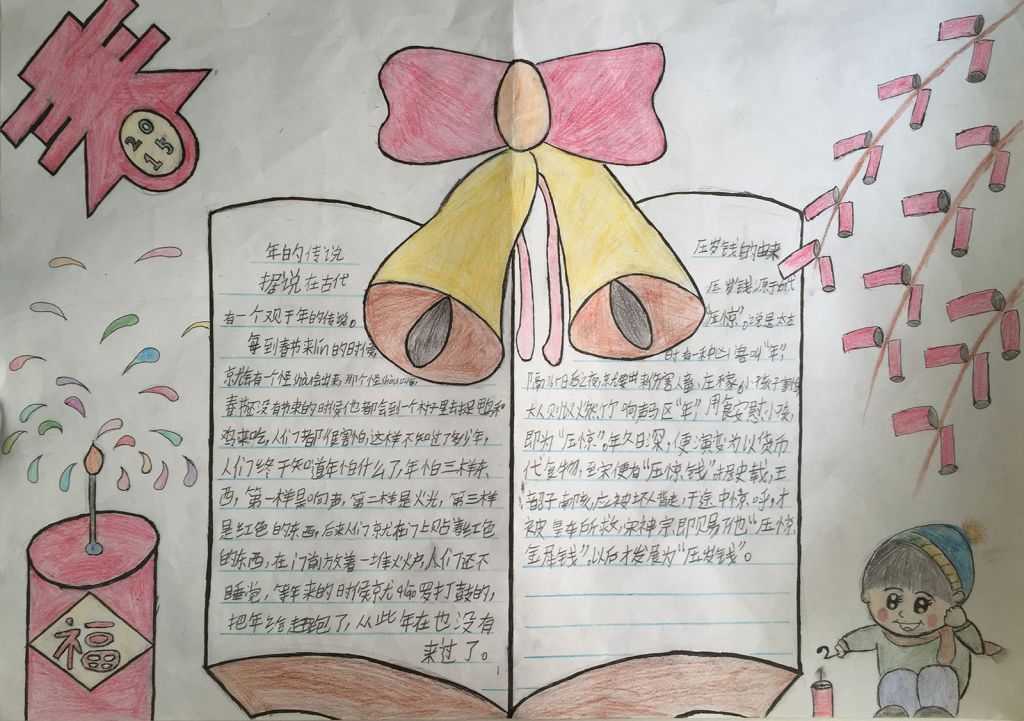 春
2015
年的传说
据说在古代
有一个关于年的传说。
每到春节来lin的时候
就有一个怪shou会出来,那个怪shou叫年。
春节没有来的时候他都会到一个村子里去捉鸭和
鸡来吃,人们都很害怕这样不知过了多少年,
人们终于知道年怕什么了,年怕三样东
西,第一样是响声,第二样是火光,第三样
是红色的东西,后来人们就在门上贴着红色
的东西,在门前放着一堆火火户人们还不
睡觉,等年来的时候就敲锣打鼓的,
把年给赶跑了,从此年在也没有
来过了。
压岁钱的由来
压岁钱源于古代
"压惊"。说是太古
时有一种凶兽叫"年",
隔365日后之夜,就要出来伤害人畜、庄稼。小孩子害怕
大人则以燃竹响声区"年",用食安慰小孩,
即为"压惊"。年久日深,便演变为以货币
代食物,至宋便有"压惊钱"。据史载,王
韶子南陔,应被坏人背走,于途中惊呼,才
被皇车所救,宋神宗即贝易了他"压惊
金犀钱"。以后才发展为"压岁钱"。
福